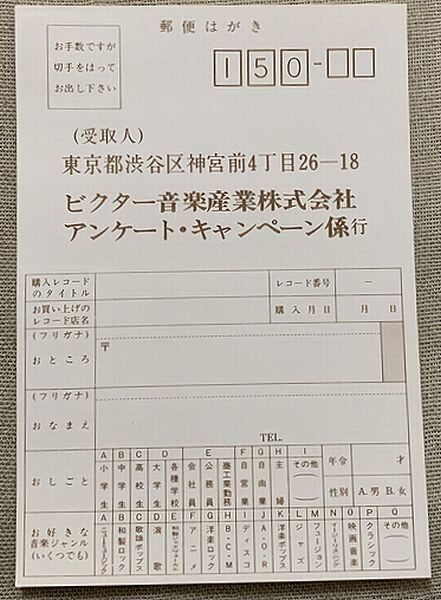 郵便はがき
お手数ですが
切手をはって
お出し下さい
150-
(受取人)
東京都渋谷区神宮前4丁目26—18
ビクター音楽産業株式会社
アンケート・キャンペーン係行
購入レコードのタイトル
レコード番号 −
お買い上げのレコード店名
購入月日 月 日
(フリガナ)
おところ
〒
(フリガナ)
おなまえ
TEL.
おしごと
A 小学生
B 中学生
C 高校生
D 大学生
各種学校
E 会社員
公務員
商工業勤務
F 自営業
G 自由業
H 主婦
I その他
年令 才
性別 A.男 B.女
お好きな音楽ジャンル(いくつでも)
A ニューミュージック
B 和製ロック
C 歌謡ポップス
D 演歌
F アニメ
G 洋楽ロック
H B・C・M
I ディスコ
J A・O・R
K 洋楽ポップス
L ジャズ
M フュージョン
N イージーリスニング
O 映画音楽
P クラシック
Q その他